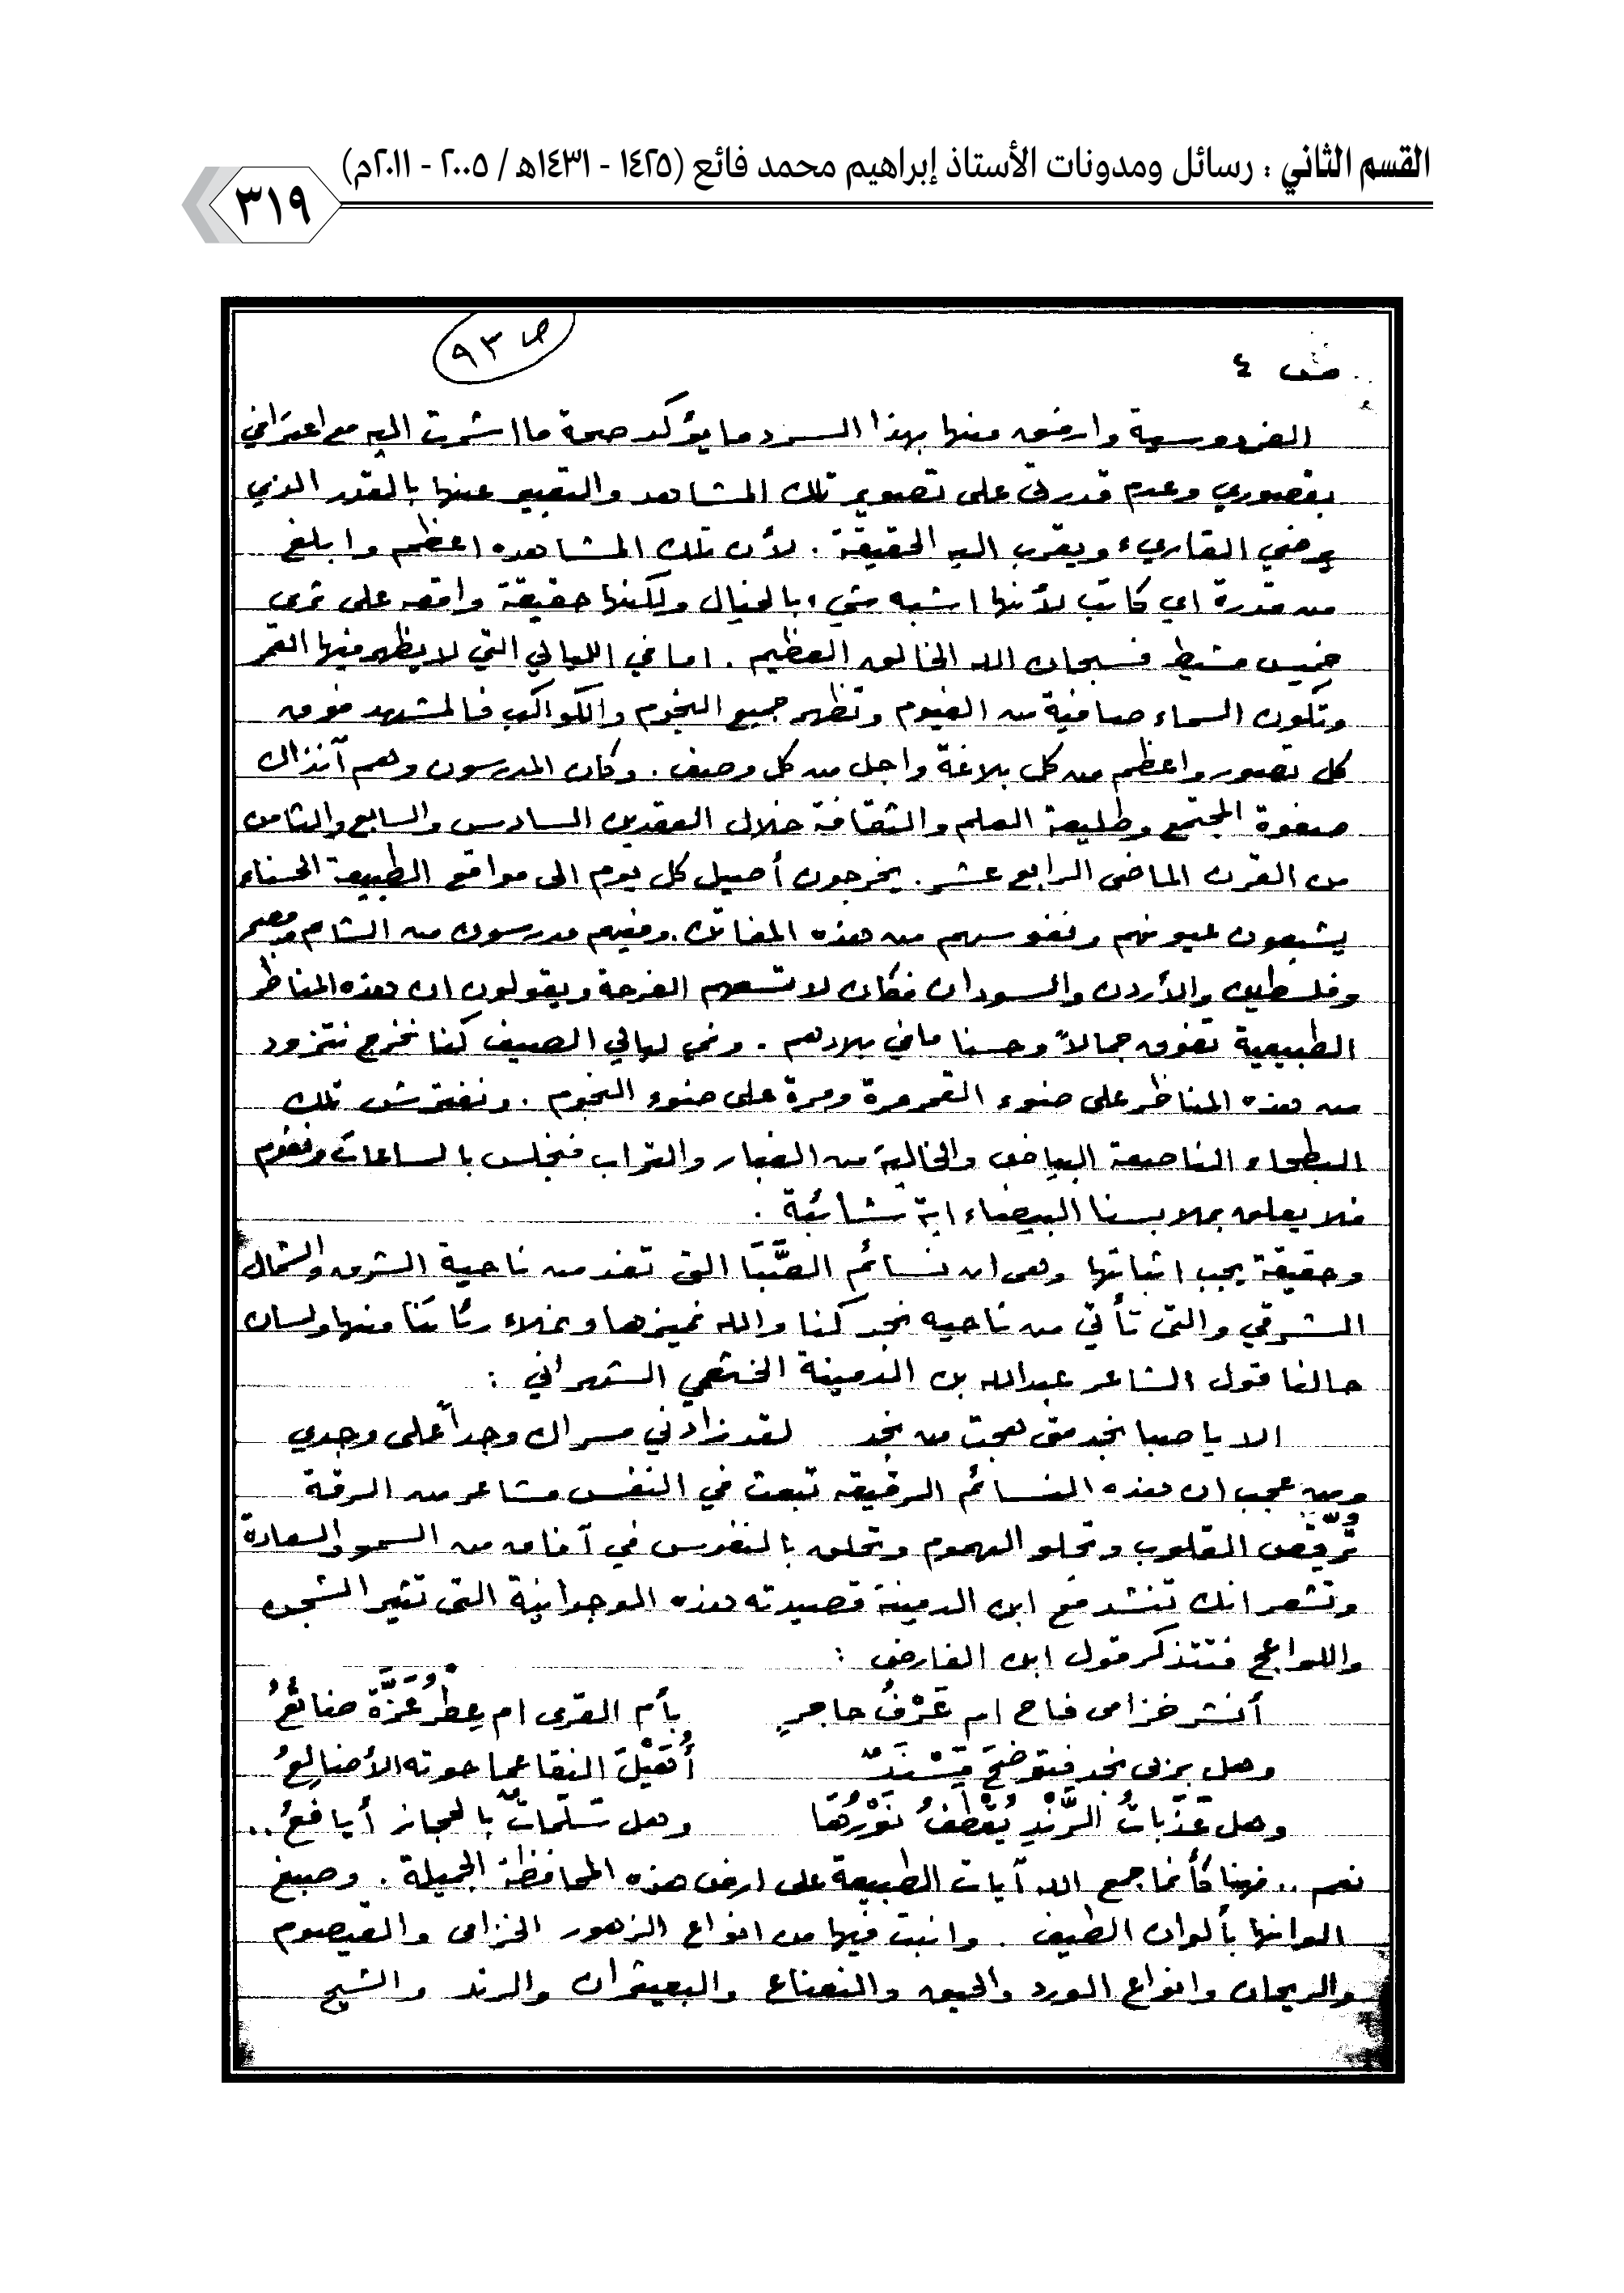 القسم الثاني : رسائل ومدونات الأستاذ إبراهيم محمد فائع (١٤٢٥ - ١٤٣١هـ / ٢٠٠٥ - ٢٠١١م)
٣١٩
ص ٩٣
ص ٤
الفردوسية وارفق منها بهذا السرد ما يؤكد صحة ما اشرت اليه مع اعترافي
بقصوري وعدم قدرتي على تصوير تلك المشاهد والتعبير عنها بالقدر الذي
يرضي القاريء ويقرب اليه الحقيقة . لأن تلك المشاهده اعظم وابلغ
من قدرة اي كاتب لأنها اشبه شيء بالخيال ولكنها حقيقة واقعه على ثرى
خميس مشيط فسبحان الله الخالق العظيم . اما في الليالي التي لا يظهر فيها القمر
وتكون السماء صافية من الغيوم وتظهر جميع النجوم والكواكب فالمشهد فوق
كل تصور واعظم من كل بلاغة واجل من كل وصف . وكان المدرسون وهم آنذاك
صفوة المجتمع وطليعة العلم والثقافة خلال العقدين السادس والسابع والثامن
من القرن الماضي الرابع عشر . يخرجون أصيل كل يوم الى مواقع الطبيعة الحسناء
يشبعون عيونهم ونفوسهم من هذه المفاتن . وفيهم مدرسون من الشام ومصر
وفلسطين والأردن والسودان فكان لا تسعهم الفرحة ويقولون ان هذه المناظر
الطبيعية تفوق جمالاً وحسنا ما في بلادهم . وفي ليالي الصيف كنا نخرج نتزود
من هذه المناظر على ضوء القمر مرة ومرة على ضوء النجوم . ونفترش تلك
البطحاء الناصعة البياض والخالية من الغبار والتراب فنجلس بالساعات ونقوم
فلا يعلق بملابسنا البيضاء اية شائبة .
وحقيقة يجب اثباتها وهى ان نسائم الصَّبَا التى تفد من ناحية الشرق والشمال
الشرقي والتى تأتي من ناحيه نجد كنا والله نميزها ونملاء رئاتنا منها ولسان
حالنا قول الشاعر عبدالله بن الدمينة الخثعمي الشهراني :
الا يا صبا نجد متى هجت من نجد لقد زادني مسراك وجداً على وجدي
ومن عجب ان هذه النسائم الرقيقه تبعث في النفس مشاعر من الرقة
وتُرقِّص القلوب وتجلو الهموم وتحلق بالنفوس في آفاق من السمو والسعادة
وتشعر انك تنشد مع ابن الدمينة قصيدته هذه الوجدانية التى تثير الشجون
واللواعج فتتذكر قول ابن الفارض :
أنشر خزامى فاح ام عَرْفُ حاجرٍ بأم القرى ام عِطْرُ عَزَّةَ ضائعُ
وهل بربى نجد فتوضِحَ مَسْنَدٌ أُهَيْلَ النقا عما حوته الأضالِعُ
وهل عَذَبَاتُ الرَّنْدِ يُقْطَفُ نَوْرُهَا وهل سَلَمَاتٌ بالحجاز أيافعُ ..
نعم .. فهنا كأنما جمع الله آيات الطبيعة على ارض هذه المحافظة الجميلة . وصبغ
الوانها بألوان الطيف . وانبت فيها من انواع الزهور الخزامى والقيصوم
والريحان وانواع الورد والحبق والنعناع والبعيثران والرند والشيح